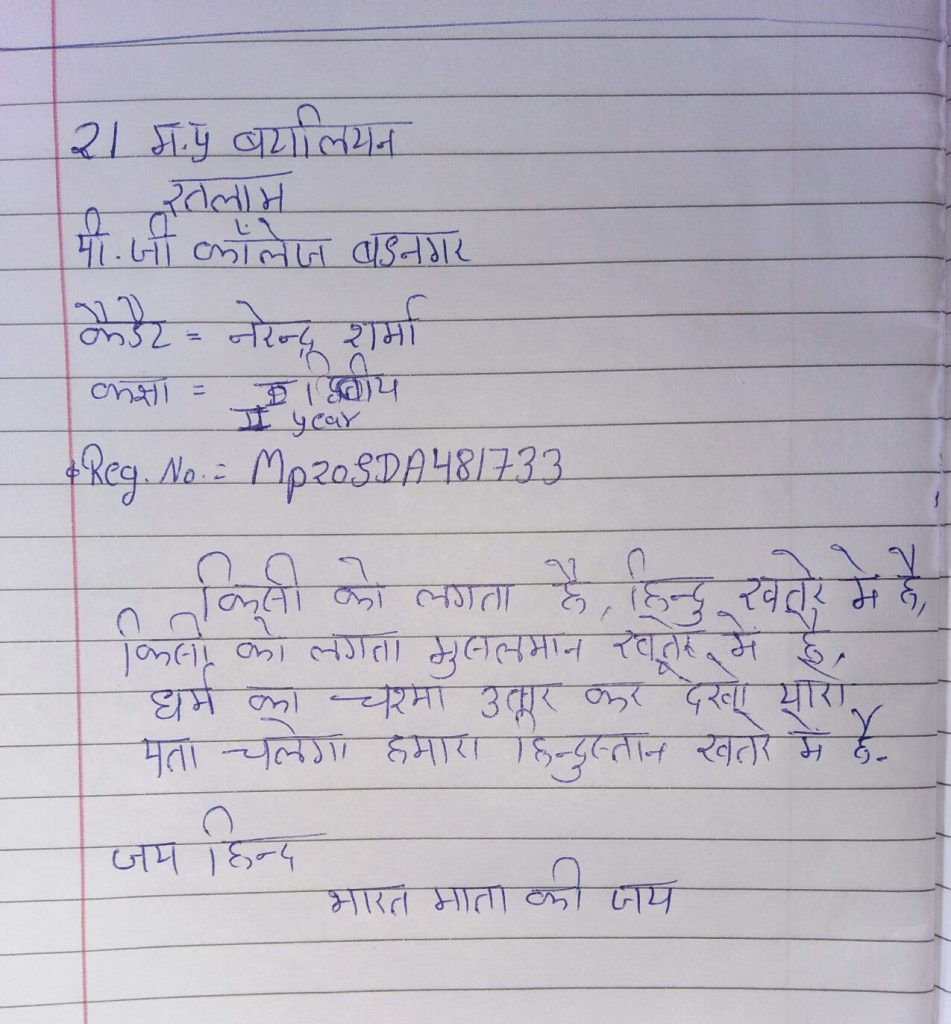 21 म.प्र बटालियन
रतलाम
पी.जी कॉलेज बडनगर
कैडैट = नरेन्द्र शर्मा
कक्षा = द्वितीय
II year
Reg. No. = Mp20SDA481733
किसी को लगता है, हिन्दु खतरे में है,
किसी को लगता मुसलमान खतरे में है,
धर्म का चश्मा उतार कर देखो यारो
पता चलेगा हमारा हिन्दुस्तान खतरे में है.
जय हिन्द
भारत माता की जय